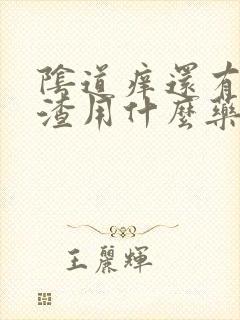 陰道痒還有
渣用什麼藥
王麗輝